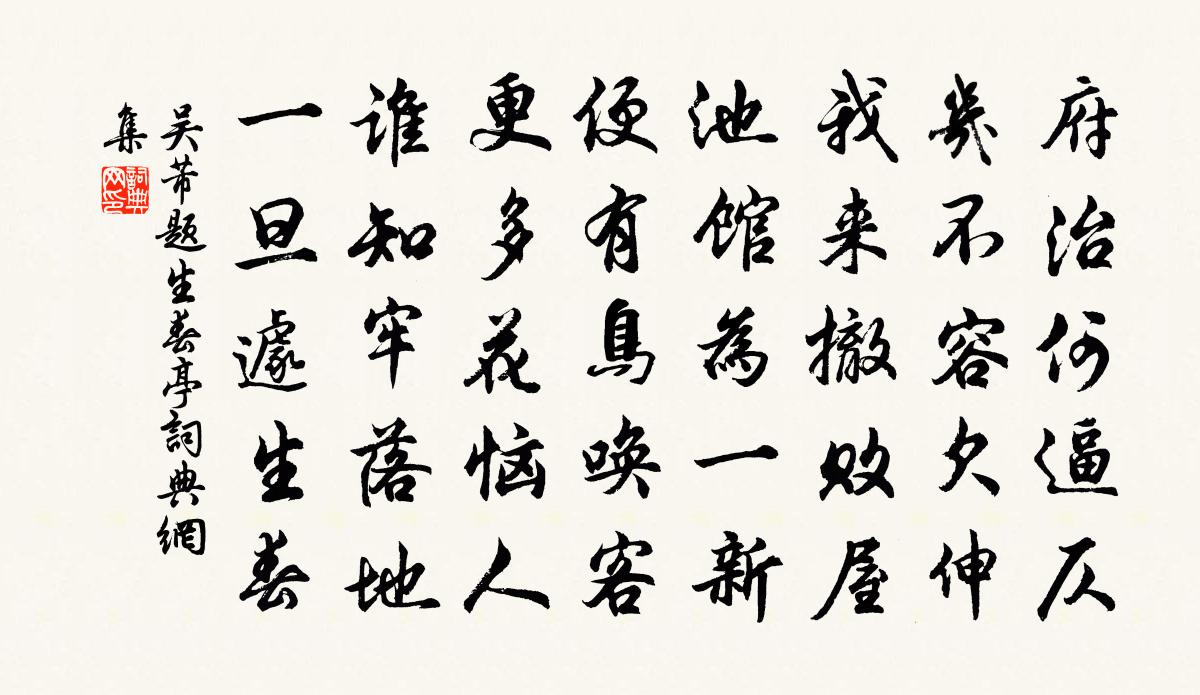 府治何逼仄
幾不容欠伸
我来撤败屋
池馆為一新
便有鳥唤客
更多花恼人
谁知牢落地
一旦遽生春
吴芾题生春亭詞典網
集
詞典网印